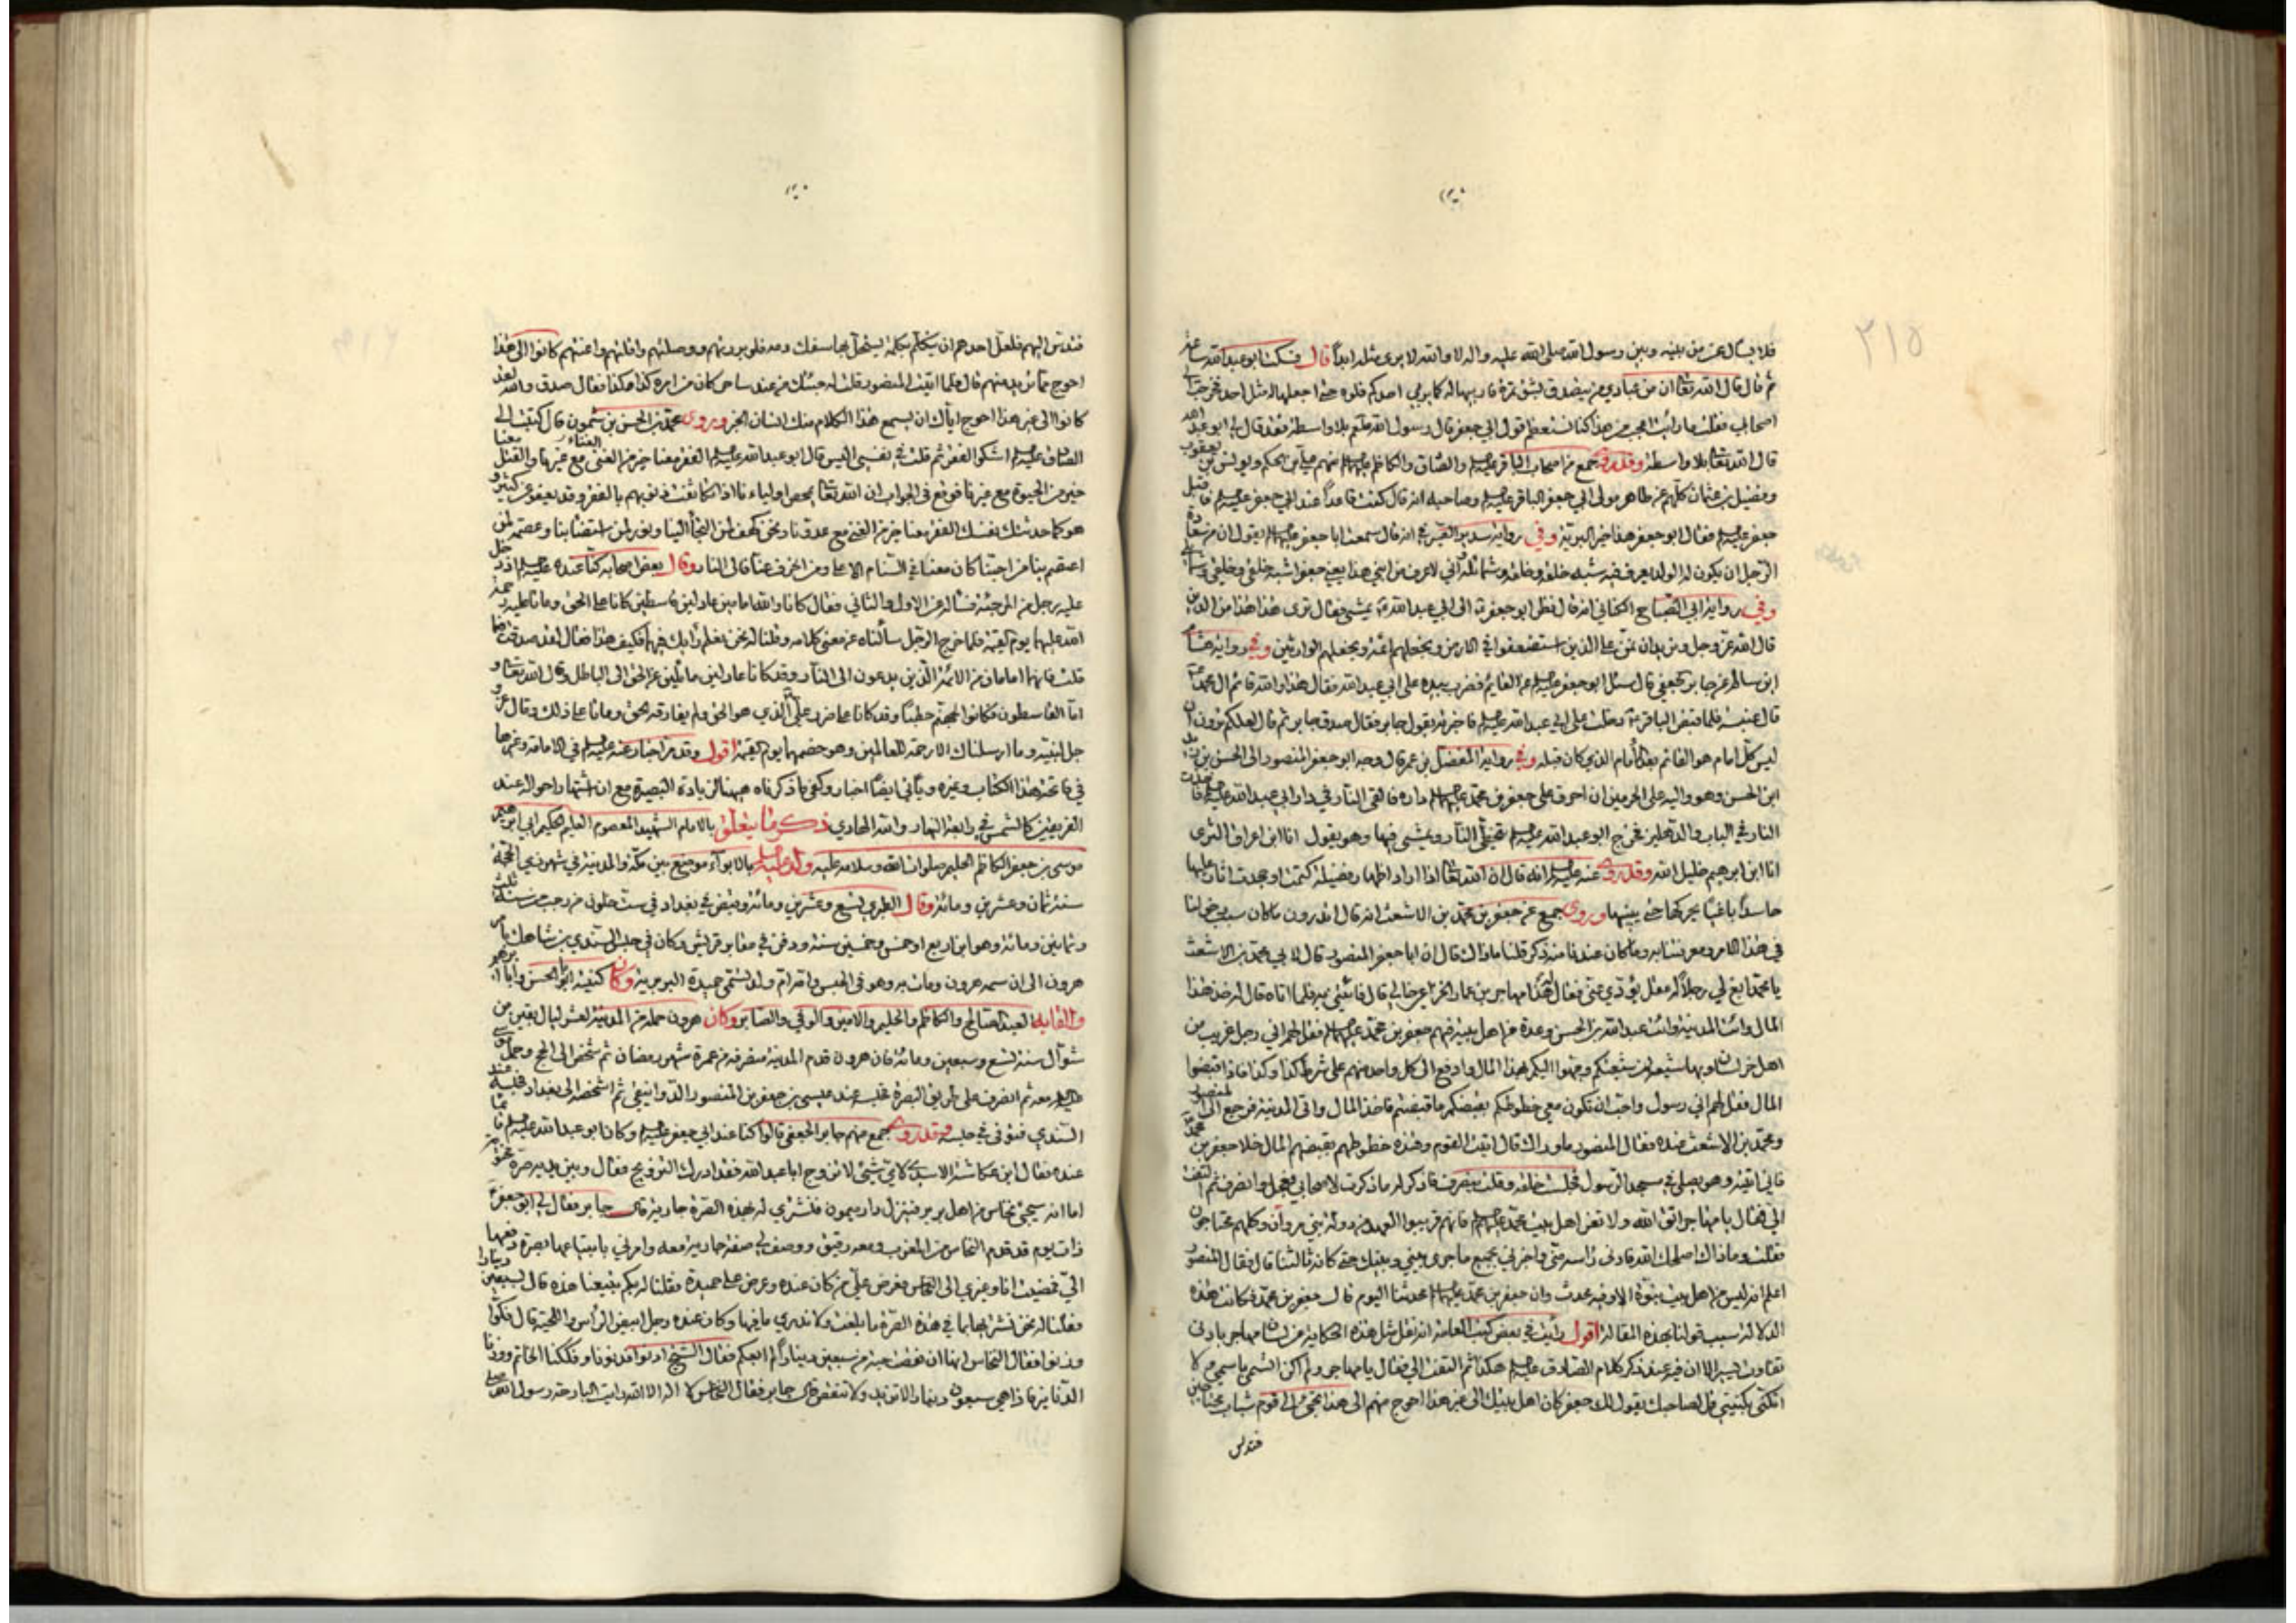 ٢١٥
فلا يسأل عمن بينه وبين رسول الله صلى الله عليه واله لا والله لا يرى مثله ابداً قال فسكت ابو عبد الله ساعة
ثم قال قال الله تعالى ان من عبادي من يتصدق بشق تمرة فاربيها له كما يربي احدكم فلوه حتى اجعلها له مثل احد فخرجت الى
اصحابي فقلت ما رأيت اعجب من هذا كنا نستعظم قول ابي جعفر قال رسول الله صلعم بلا واسطة فقد قال لي ابو عبد الله
قال الله تعالى بلا واسطة وقد روى جمع من اصحاب الباقر عليه السلام والصادق والكاظم عليهم السلام منهم علي بن الحكم ويونس بن يعقوب
وفضيل بن عثمان كلهم عن طاهر مولى ابي جعفر الباقر عليه السلام وصاحبه انه قال كنت قاعداً عند ابي جعفر عليه السلام فاقبل
جعفر عليه السلام فقال ابو جعفر هذا خير البرية وفي رواية سدير الصيرفي انه قال سمعت ابا جعفر عليه السلام يقول ان من سعادة
الرجل ان يكون له الولد يعرف فيه شبه خلقه وخلقه وشمائله واني لاعرف من ابني هذا يعني جعفرا شبه خلقي وخلقي وشمائلي
وفي رواية ابي الصباح الكناني انه قال نظر ابو جعفر الى ابي عبد الله يمشي فقال ترى هذا هذا من الذين
قال الله عز وجل ونريد ان نمن على الذين استضعفوا في الارض ونجعلهم ائمة ونجعلهم الوارثين وفي رواية هشام
ابن سالم عن جابر الجعفي قال سئل ابو جعفر عليه السلام عن القائم فضرب بيده على ابي عبد الله فقال هذا والله قائم ال محمد
قال عنبسة فلما قبض الباقر دخلت على ابي عبد الله عليه السلام فاخبرته بقول جابر فقال صدق جابر ثم قال لعلكم ترون ان
ليس كل امام هو القائم بعد الامام الذي كان قبله وفي رواية المفضل بن عمر قال وجه ابو جعفر المنصور الى الحسن بن زيد
ابن الحسن وهو واليه على الحرمين ان احرق على جعفر بن محمد عليهما السلام داره فالقى النار في دار ابي عبد الله عليه السلام فاخذت
النار في الباب والدهليز فخرج ابو عبد الله عليه السلام يتخطى النار ويمشي فيها وهو يقول انا ابن اعراق الثرى
انا ابن ابرهيم خليل الله وقد روى عنه عليه السلام انه قال ان الله تعالى اذا اراد اظهار فضيلة كتمت او جحدت اتاح لها
حاسداً باغياً يحركها حتى يبينها وروى جمع عن جعفر بن محمد بن الاشعث انه قال اتدرون ما كان سبب دخولنا
في هذا الامر ومعرفتنا به وما كان عندنا منه ذكر قلنا ما ذاك قال ان ابا جعفر المنصور قال لابي محمد بن الاشعث
يا محمد ابغ لي رجلاً له عقل يؤدي عني فقال له هذا مهاجر بن عمار الخزاعي خالي قال فأتني به فلما اتاه قال له خذ هذا
المال وائت المدينة وائت عبد الله بن الحسن وعدة من اهل بيته فيهم جعفر بن محمد عليهما السلام فقل لهم اني رجل غريب من
اهل خراسان وبها شيعة من شيعتكم وجهوا اليكم بهذا المال وادفع الى كل واحد منهم على شرط كذا وكذا فاذا قبضوا
المال فقل لهم اني رسول واحب ان يكون معي خطوطكم بقبضكم ما قبضتم فاخذ المال واتى المدينة فرجع الى المنصور
ومحمد بن الاشعث عنده فقال المنصور ما وراك قال اتيت القوم وهذه خطوطهم بقبضهم المال خلا جعفر بن محمد
فاني اتيته وهو يصلي في مسجد الرسول فجلست خلفه وقلت ينصرف فاذكر له ما ذكرت لاصحابه فعجل وانصرف ثم التفت
الي فقال يا مهاجر اتق الله ولا تغر اهل بيت محمد عليهم السلام فانهم قريبوا العهد من دولة بني مروان وكلهم محتاجون
فقلت وما ذاك اصلحك الله فادنى رأسه مني واخبرني بجميع ما جرى بيني وبينك حتى كانه ثالثنا قال فقال المنصور
اعلم انه ليس من اهل بيت نبوة الا وفيه محدث وان جعفر بن محمد عليهما السلام محدثنا اليوم قال جعفر بن محمد فكانت هذه
الدلالة سبب قولنا بهذه المقالة اقول رأيت في بعض كتب العامة انه نقل مثل هذه الحكاية عن لسان مهاجر بادنى
تفاوت يسير الا ان فيه عند ذكر كلام الصادق عليه السلام هكذا ثم التفت الي فقال يا مهاجر ولم اكن اتسمى باسمي ولا
اتكنى بكنيتي قل لصاحبك يقول لك جعفر كان اهل بيتك الى غير هذا احوج منهم الى هذا تجيء الى قوم شباب محتاجين
فتدس
فتدس اليهم فلعل احدهم ان يتكلم بكلمة يستحل بها سفك دمه فلو بررتهم ووصلتهم وانلتهم واغنيتهم كانوا الى هذا
احوج مما تريد منهم قال فلما اتيت المنصور قلت له جئتك من عند ساحر كان من امره كذا وكذا فقال صدق والله لقد
كانوا الى غير هذا احوج اياك ان يسمع هذا الكلام منك انسان الخبر وروى محمد بن الحسن بن شمون قال كتبت الى
الصادق عليه السلام اشكو الفقر ثم قلت في نفسي اليس قال ابو عبد الله عليه السلام الفقر معنا خير من الغنى مع غيرنا والقتل معنا
خير من الحيوة مع غيرنا فوقع في الجواب ان الله تعالى يمحص اولياءنا اذا تكاثفت ذنوبهم بالفقر وقد يعفو عن كثير و
هو كما حدثتك نفسك الفقر معنا خير من الغنى مع عدونا ونحن كهف لمن التجأ الينا ونور لمن استضاء بنا وعصمة لمن
اعتصم بنا من احبنا كان معنا في السنام الاعلى ومن انحرف عنا فالى النار وقال بعض اصحابه كنا عنده عليه السلام اذ دخل
عليه رجل من المرجئة فسأله عن الاول والثاني فقال كانا والله امامين عادلين قاسطين كانا على الحق وماتا عليه رحمة
الله عليهما يوم القيمة فلما خرج الرجل سألناه عن معنى كلامه وقلنا له نحن نعلم رأيك فيهما فكيف هذا فقال لقد صدقت
قلت فانهما امامان من الائمة الذين يدعون الى النار وقد كانا عادلين مائلين عن الحق الى الباطل وقال الله تعالى و
اما القاسطون فكانوا لجهنم حطبا وقد كانا على ضرب علي الذي هو الحق ولم يفارقه الحق وماتا على ذلك وقال عز و
جل لنبيه وما ارسلناك الا رحمة للعالمين وهو خصمهما يوم القيمة اقول وقد مر اخبار عنه عليه السلام في الامامة وغيرها
في فاتحة هذا الكتاب وغيره ويأتي ايضاً اخبار وكفى ما ذكرناه هيهنا لزيادة البصيرة مع ان اشتهار احواله عند
الفريقين كالشمس في رابعة النهار والله الهادي ذكر ما يتعلق بالامام الشهيد المعصوم العليم الحكيم ابي ابرهيم
موسى بن جعفر الكاظم الحليم صلوات الله وسلامه عليه ولد عليه السلام بالابواء موضع بين مكة والمدينة في شهر ذي الحجة
سنة ثمان وعشرين ومائة وقال الطبرسي تسع وعشرين ومائة وقبض في بغداد في ست خلون من رجب من سنة ثلث
وثمانين ومائة وهو ابن اربع او خمس وخمسين سنة ودفن في مقابر قريش وكان في حبس السندي بن شاهك بامر
هرون الى ان سمه هرون ومات به وهو في الحبس وامه ام ولد تسمى حميدة البربرية وكان كنيته ابا الحسن وابا ابرهيم
والقابه العبد الصالح والكاظم والحليم والامين والوفي والصابر وكان هرون حمله من المدينة لعشر ليال بقين من
شوال سنة تسع وسبعين ومائة فان هرون قدم المدينة منصرفه من عمرة شهر رمضان ثم شخص الى الحج وحمل موسى
عليه السلام معه ثم انصرف على طريق البصرة فحبسه عند عيسى بن جعفر بن المنصور الدوانيقي ثم اشخصه الى بغداد فحبسه عند
السندي فتوفي في حبسه وقد روى جمع منهم جابر الجعفي قالوا كنا عند ابي جعفر عليه السلام وكان ابو عبد الله عليه السلام قائما
عنده فقال ابن عكاشة الاسدي لاي شيء لا تزوج ابا عبد الله فقد ادرك التزويج فقال وبين يديه صرة مختومة
اما انه سيجيء نخاس من اهل بربر فينزل دار ميمون فنشتري له بهذه الصرة جارية قال جابر فقال لي ابو جعفر
ذات يوم قد قدم النخاس من المغرب ومعه رقيق ووصف لي صفة جارية معه وامرني بابتياعها بصرة دفعها
الي فمضيت انا وغيري الى النخاس فعرض علي من كان عنده وعرض علي حميدة فقلنا له بكم تبيعنا هذه قال بسبعين دينارا
فقلنا له نحن نشتريها بما في هذه الصرة ما بلغت ولا ندري ما فيها وكان عنده رجل ابيض الرأس واللحية قال فكوا
وزنوا فقال النخاس انها ان نقصت حبة من سبعين دينارا لم ابعكم فقال الشيخ ادنوا فدنونا وفككنا الخاتم ووزنا
الدنانير فاذا هي سبعون دينارا لا تزيد ولا تنقص قال جابر فقال النخاس لا اله الا الله رأيت البارحة رسول الله صلى